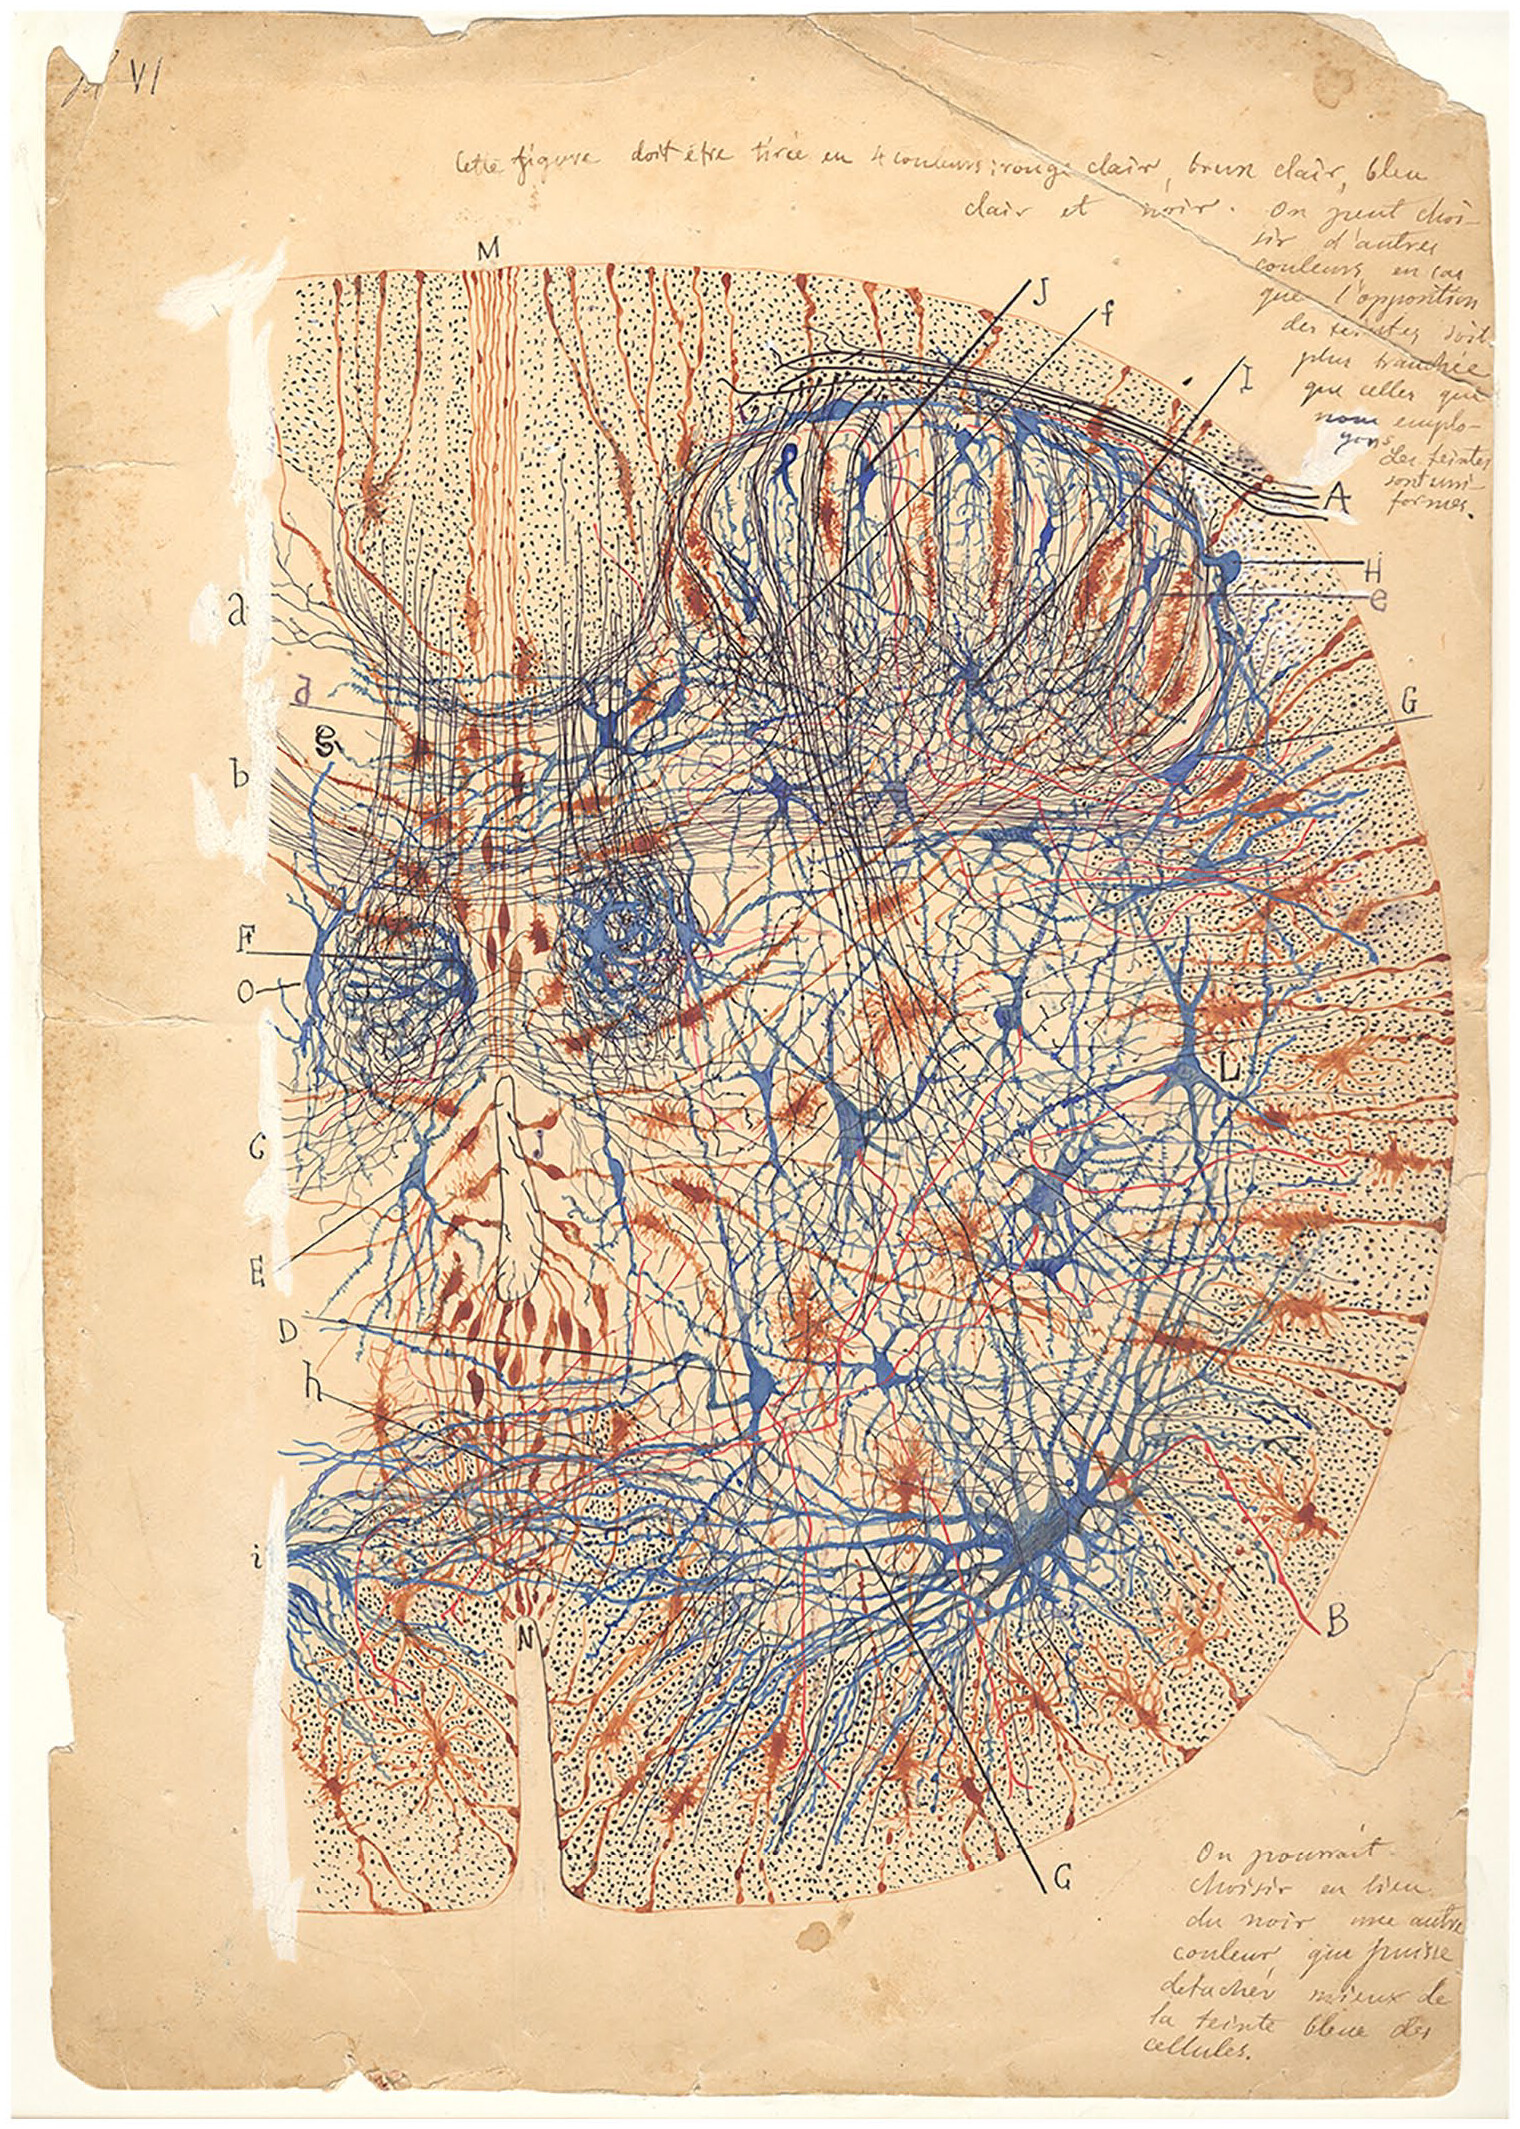 VI
Cette figure doit être tirée en 4 couleurs: rouge clair, brun clair, bleu
clair et noir. On peut choi-
sir d'autres
couleurs en cas
que l'opposition
des teintes soit
plus tranchée
que celles que
nous emplo-
yons
Les teintes
sont uni-
formes.
M
J
f
I
A
H
e
a
d
G
b
F
O
L
C
E
D
h
i
N
B
G
On pourrait
choisir en lieu
du noir une autre
couleur, que puisse
detacher mieux de
la teinte bleue des
cellules.